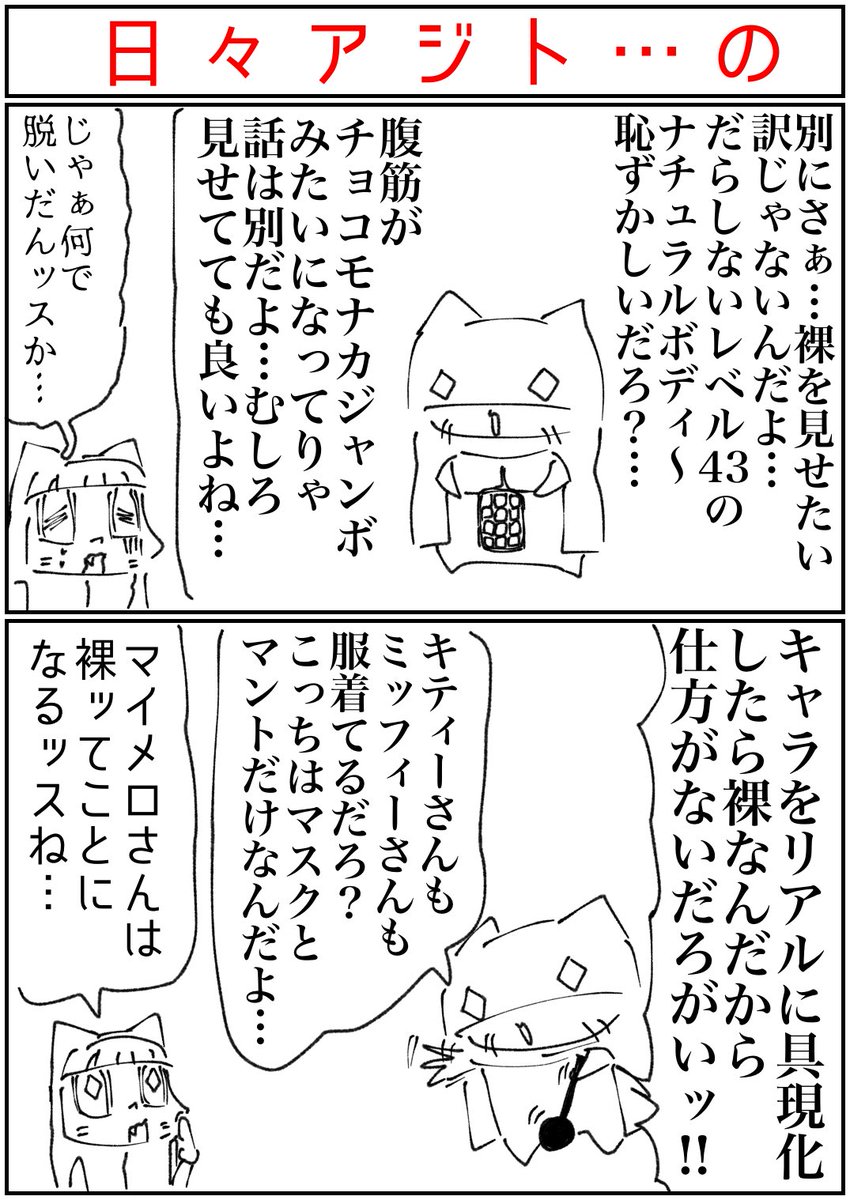 日々アジト…の
別にさぁ…裸を見せたい
訳じゃないんだよ…
だらしないレベル43の
ナチュラルボディ〜
恥ずかしいだろ?…
腹筋が
チョコモナカジャンボ
みたいになってりゃ
話は別だよ…むしろ
見せてても良いよね…
じゃぁ何で
脱いだんッスか…
キャラをリアルに具現化
したら裸なんだから
仕方がないだろがいッ!!
キティーさんも
ミッフィーさんも
服着てるだろ?
こっちはマスクと
マントだけなんだよ…
マイメロさんは
裸ッてことに
なるッスね…